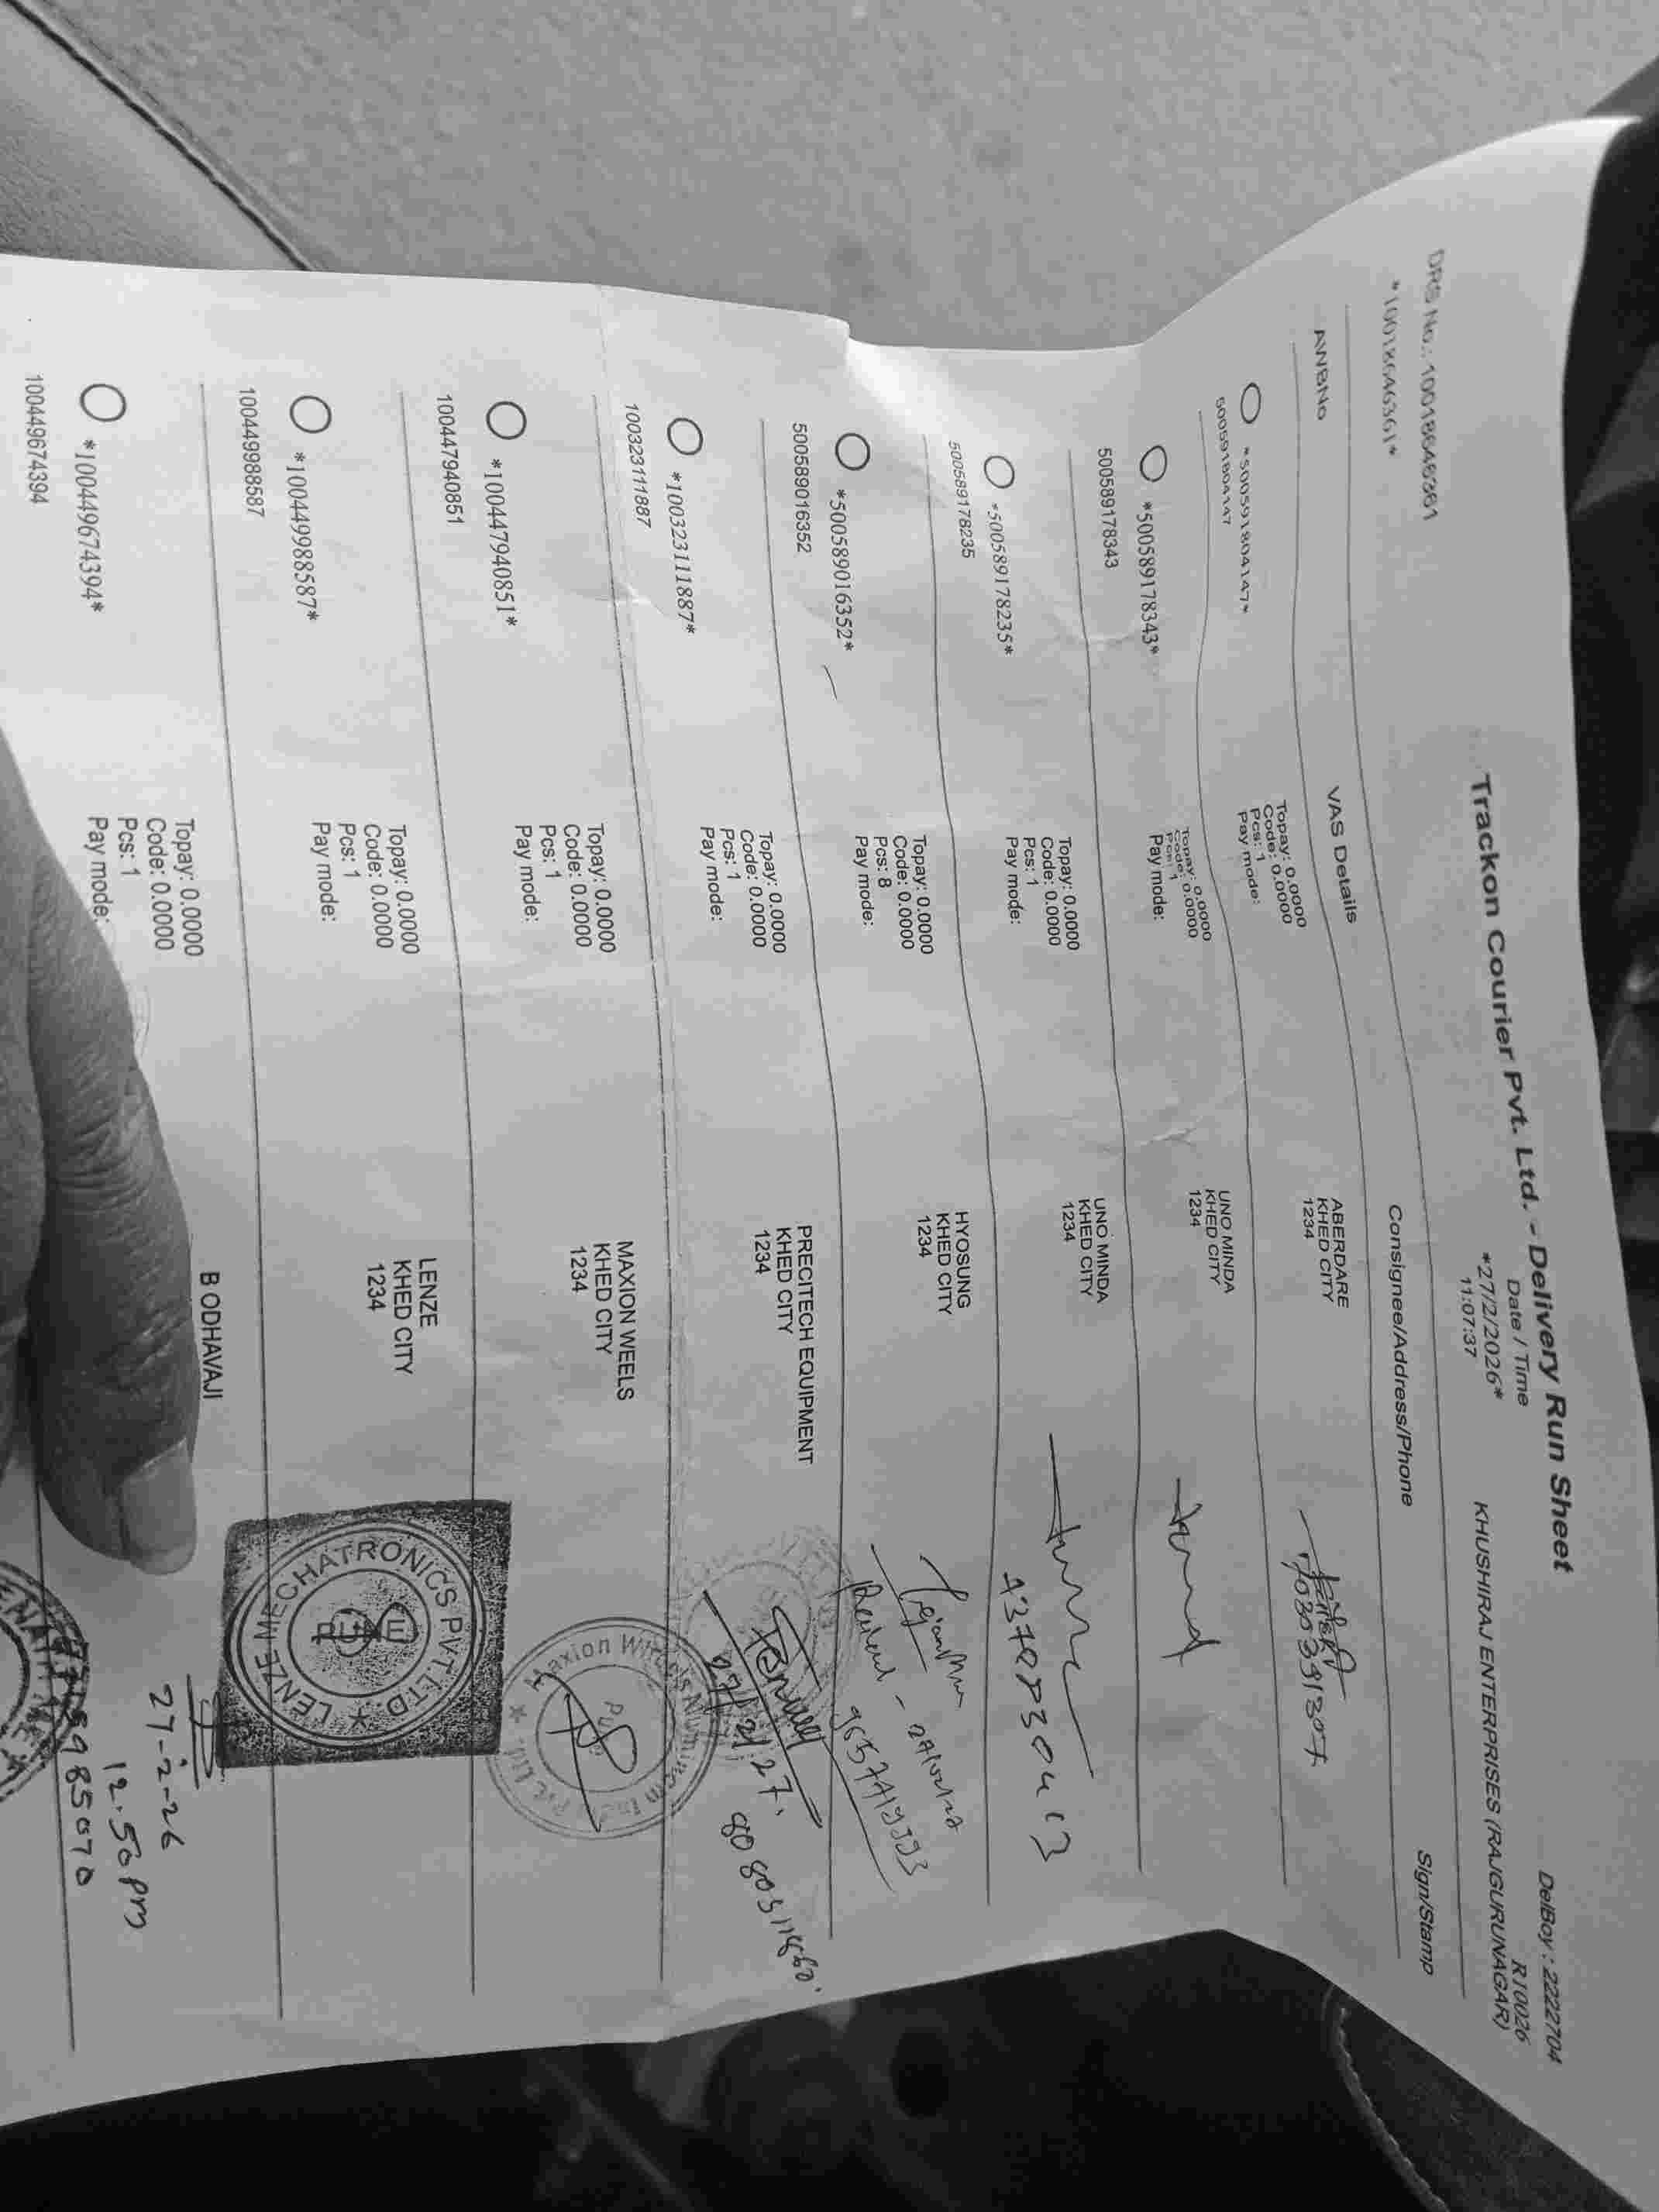 Trackon Courier Pvt. Ltd. - Delivery Run Sheet
DelBoy : 222704
DRS No.: 10018646361
Date / Time
R10026
*10018646361*
*27/2/2026*
11:07:37
KHUSHIRAJ ENTERPRISES (RAJGURUNAGAR)
AWBNo VAS Details Consignee/Address/Phone Sign/Stamp
*500591804147*
500591804147
Topay: 0.0000
Code: 0.0000
Pcs: 1
Pay mode:
ABERDARE
KHED CITY
1234
*500589178343*
500589178343
Topay: 0.0000
Code: 0.0000
Pcs: 1
Pay mode:
UNO MINDA
KHED CITY
1234
*500589178235*
500589178235
Topay: 0.0000
Code: 0.0000
Pcs: 1
Pay mode:
UNO MINDA
KHED CITY
1234
*500589016352*
500589016352
Topay: 0.0000
Code: 0.0000
Pcs: 8
Pay mode:
HYOSUNG
KHED CITY
1234
*10032311887*
10032311887
Topay: 0.0000
Code: 0.0000
Pcs: 1
Pay mode:
PRECITECH EQUIPMENT
KHED CITY
1234
*100447940851*
100447940851
Topay: 0.0000
Code: 0.0000
Pcs: 1
Pay mode:
MAXION WEELS
KHED CITY
1234
Maxion Wheels
*100449988587*
100449988587
Topay: 0.0000
Code: 0.0000
Pcs: 1
Pay mode:
LENZE
KHED CITY
1234
LENZE MECHATRONICS PVT. LTD.
*100449674394*
100449674394
Topay: 0.0000
Code: 0.0000
Pcs: 1
Pay mode:
B ODHAVAJI
27-2-26
12.50 pm